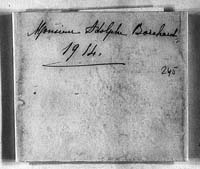 Monsieur Adolphe Borchard.
1914.
245